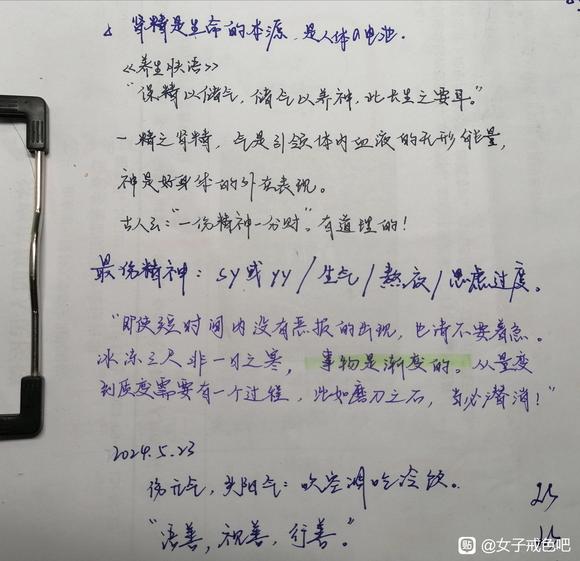 肾精是生命的本源，是人体的电池。
《养生快语》
“保精以储气，储气以养神，此长生之要耳。”
一精之肾精，气是引领体内血液的无形能量，
神是好身体的外在表现。
古人云：“一伤精神一分财”。有道理的！
最伤精神：sy或yy/生气/熬夜/思虑过度。
“即使短时间内没有恶报的出现，也请不要着急。
冰冻三尺非一日之寒，事物是渐变的。从量变
到质变需要有一个过程，此如磨刀之石，当必潜消！”
2024.5.23
伤元气，失阳气：吹空调吃冷饮。
“语善，视善，行善。”
贴 @女子戒色吧